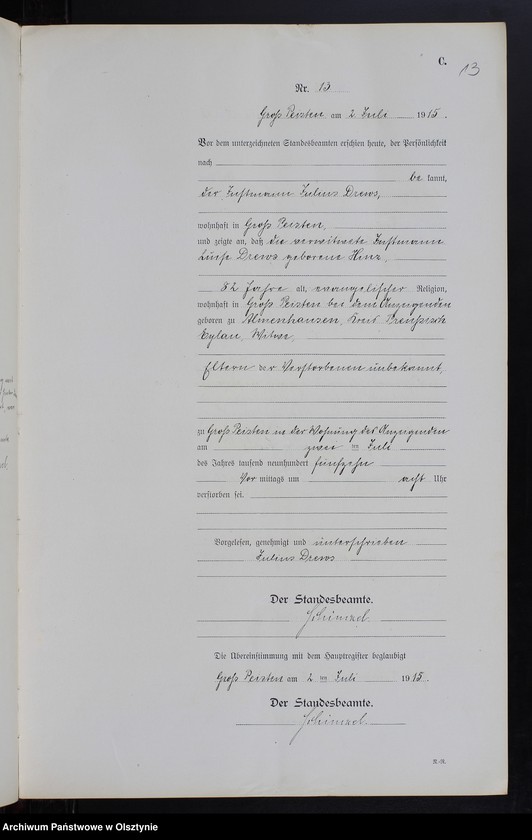 C.
13
Nr. 13
Groß Peisten am 2 Juli 1915.
Vor dem unterzeichneten Standesbeamten erschien heute, der Persönlichkeit
nach
be kannt,
der Instmann Julius Drews,
wohnhaft in Groß Peisten,
und zeigte an, daß die verwitwete Instmann
Luise Drews geborene Hinz,
82 Jahre alt, evangelischer Religion,
wohnhaft in Groß Peisten bei dem Anzeigenden
geboren zu Almenhausen, Kreis Preußisch
Eylau, Witwe,
Eltern der Verstorbenen unbekannt,
zu Groß Peisten in der Wohnung des Anzeigenden
am zwei ten Juli
des Jahres tausend neunhundert fünfzehn
Vor mittags um acht Uhr
verstorben sei.
Vorgelesen, genehmigt und unterschrieben
Julius Drews
Der Standesbeamte.
Schimzel.
Die Übereinstimmung mit dem Hauptregister beglaubigt
Groß Peisten am 2 ten Juli 1915.
Der Standesbeamte.
Schimzel.
R.-R.
Archiwum Państwowe w Olsztynie